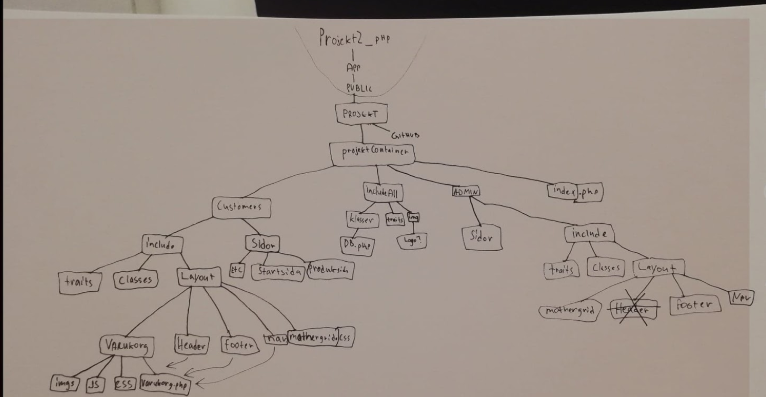 Projekt2_php
App
PUBLIC
PROJEKT
GitHub
projektContainer
Customers
includeAll
ADMIN
index.php
Include
Sidor
klasser
traits
Logo?
DB.php
Sidor
include
traits
classes
Layout
etc
Startsida
Produktsida
traits
Classes
Layout
mothergrid
Header
Footer
Nav
Varukorg
Header
footer
nav
mothergrid
css
imgs
JS
CSS
varukorg.php